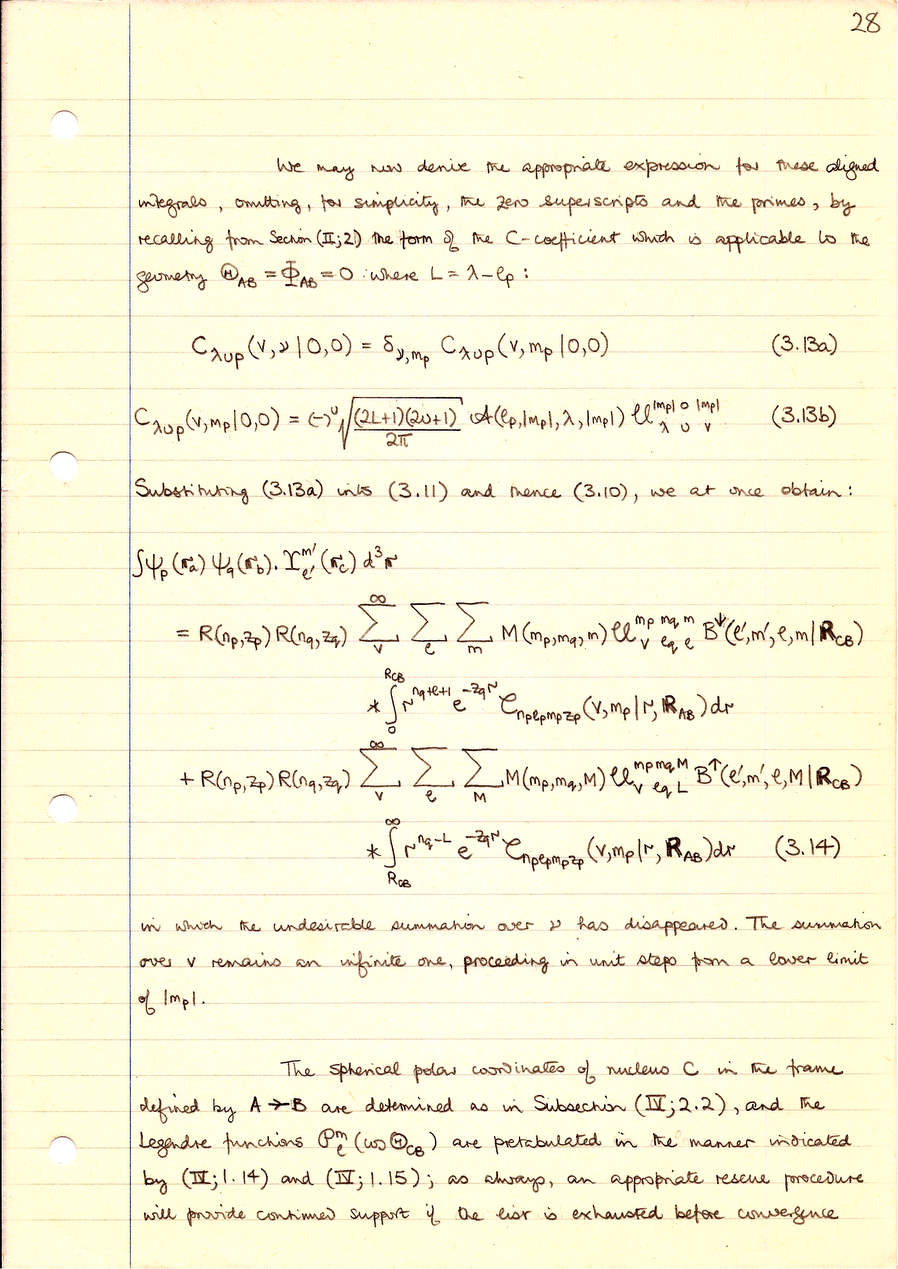 28
We may now derive the appropriate expression for these aligned
integrals, omitting, for simplicity, the zero superscripts and the primes, by
recalling from Section (II;2) the form of the C-coefficient which is applicable to the
geometry Θ_AB = Φ_AB = 0 : where L = λ - ℓ_p :
C_λυp(v,ν|0,0) = δ_ν,m_p C_λυp(v,m_p|0,0) (3.13a)
C_λυp(v,m_p|0,0) = (-)^υ √((2L+1)(2υ+1)/2π) A(ℓ_p,|m_p|,λ,|m_p|) U^{|m_p| 0 |m_p|}_{λ υ v} (3.13b)
Substituting (3.13a) into (3.11) and thence (3.10), we at once obtain:
∫ψ_p(r_a) ψ_q(r_b). Υ^{m'}_{ℓ'}(r_c) d³r
= R(n_p,z_p) R(n_q,z_q) ∑_v^∞ ∑_ℓ ∑_m M(m_p,m_q,m) U^{m_p m_q m}_{v ℓ_q ℓ} B^↓(ℓ',m',ℓ,m|R_CB)
* ∫_0^{R_CB} r^{n_q+ℓ+1} e^{-z_q r} C_{n_pℓ_pm_pz_p}(v,m_p|r,R_AB) dr
+ R(n_p,z_p) R(n_q,z_q) ∑_v^∞ ∑_ℓ ∑_M M(m_p,m_q,M) U^{m_p m_q M}_{v ℓ_q L} B^↑(ℓ',m',ℓ,M|R_CB)
* ∫_{R_CB}^∞ r^{n_q-L} e^{-z_q r} C_{n_pℓ_pm_pz_p}(v,m_p|r,R_AB) dr (3.14)
in which the undesirable summation over ν has disappeared. The summation
over v remains an infinite one, proceeding in unit steps from a lower limit
of |m_p|.
The spherical polar coordinates of nucleus C in the frame
defined by A → B are determined as in Subsection (IV;2.2), and the
Legendre functions P^m_ℓ(cos Θ_CB) are pretabulated in the manner indicated
by (IV;1.14) and (IV;1.15); as always, an appropriate rescue procedure
will provide continued support if the list is exhausted before convergence